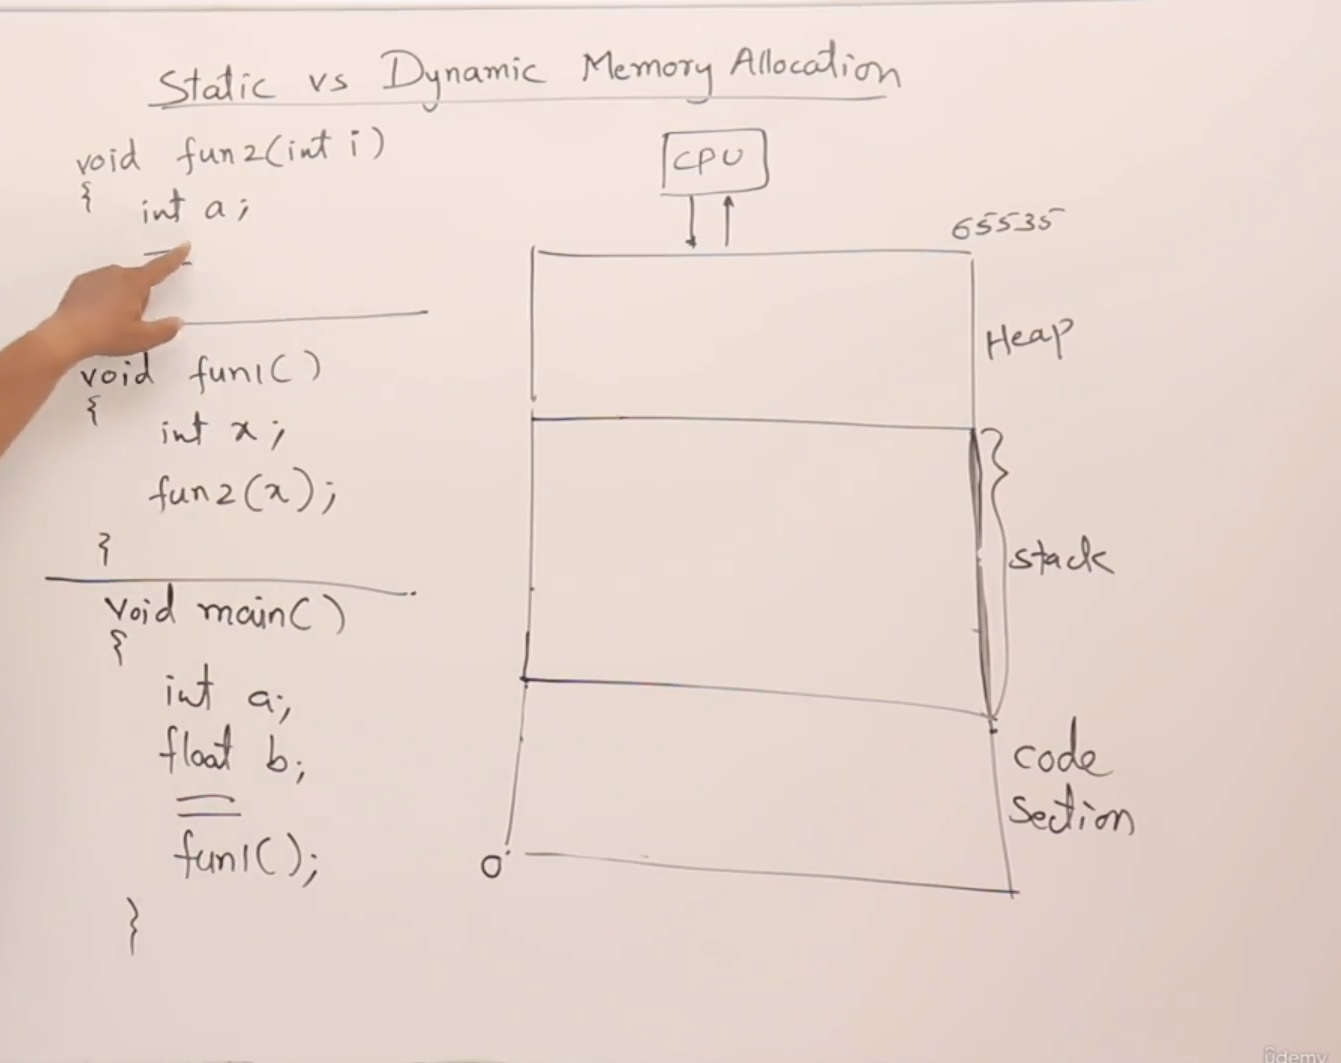 Static vs Dynamic Memory Allocation
void fun2(int i)
{
int a;
void fun1()
{
int x;
fun2(x);
}
void main()
{
int a;
float b;
fun1();
}
CPU
65535
Heap
stack
code
section
0
ûdemy